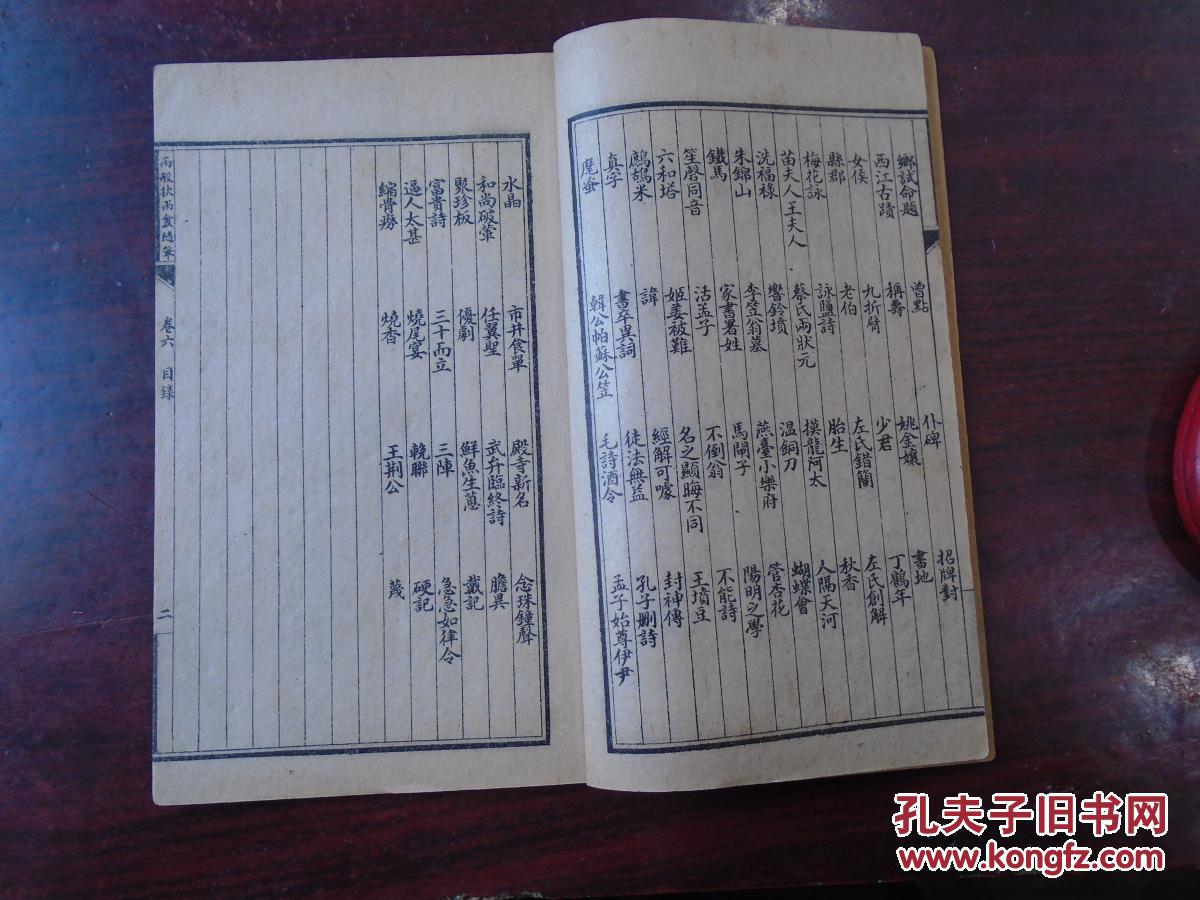 鄉試命題 曾點 仆碑 招牌對
西江古蹟 稱壽 姚金孃 書地
女侯 九折臂 少君 丁鶴年
縣郡 老伯 左氏錯簡 左氏創解
梅花詠 詠鹽詩 胎生 秋香
苗夫人王夫人 蔡氏兩狀元 摸龍阿太 人隔天河
洗福祿 響鈴墳 温銅刀 蝴蝶會
朱錦山 李笠翁墓 燕臺小樂府 管杏花
鐵馬 家書署姓 馬閘子 陽明之學
笙磬同音 活孟子 不倒翁 不能詩
六和塔 姬姜被難 名之顯晦不同 王墳豆
鷓鴣米 諱 經解可噱 封神傳
真字 書卒異詞 徒法無益 孔子刪詩
韓公帕蘇公笠 毛詩酒令 孟子始尊伊尹
水晶 市井食單 殿寺新名 念珠鐘聲
和尚破葷 任翼聖 武弁臨終詩 膽異
聚珍板 優劇 鮮魚生蔥 戴記
富貴詩 三十而立 三陣 急急如律令
逼人太甚 燒尾宴 輓聯 硬記
縮骨癆 燒香 王荆公 蔑
兩般秋雨盦隨筆 卷六 目錄 二
孔夫子旧书网
www.kongfz.com